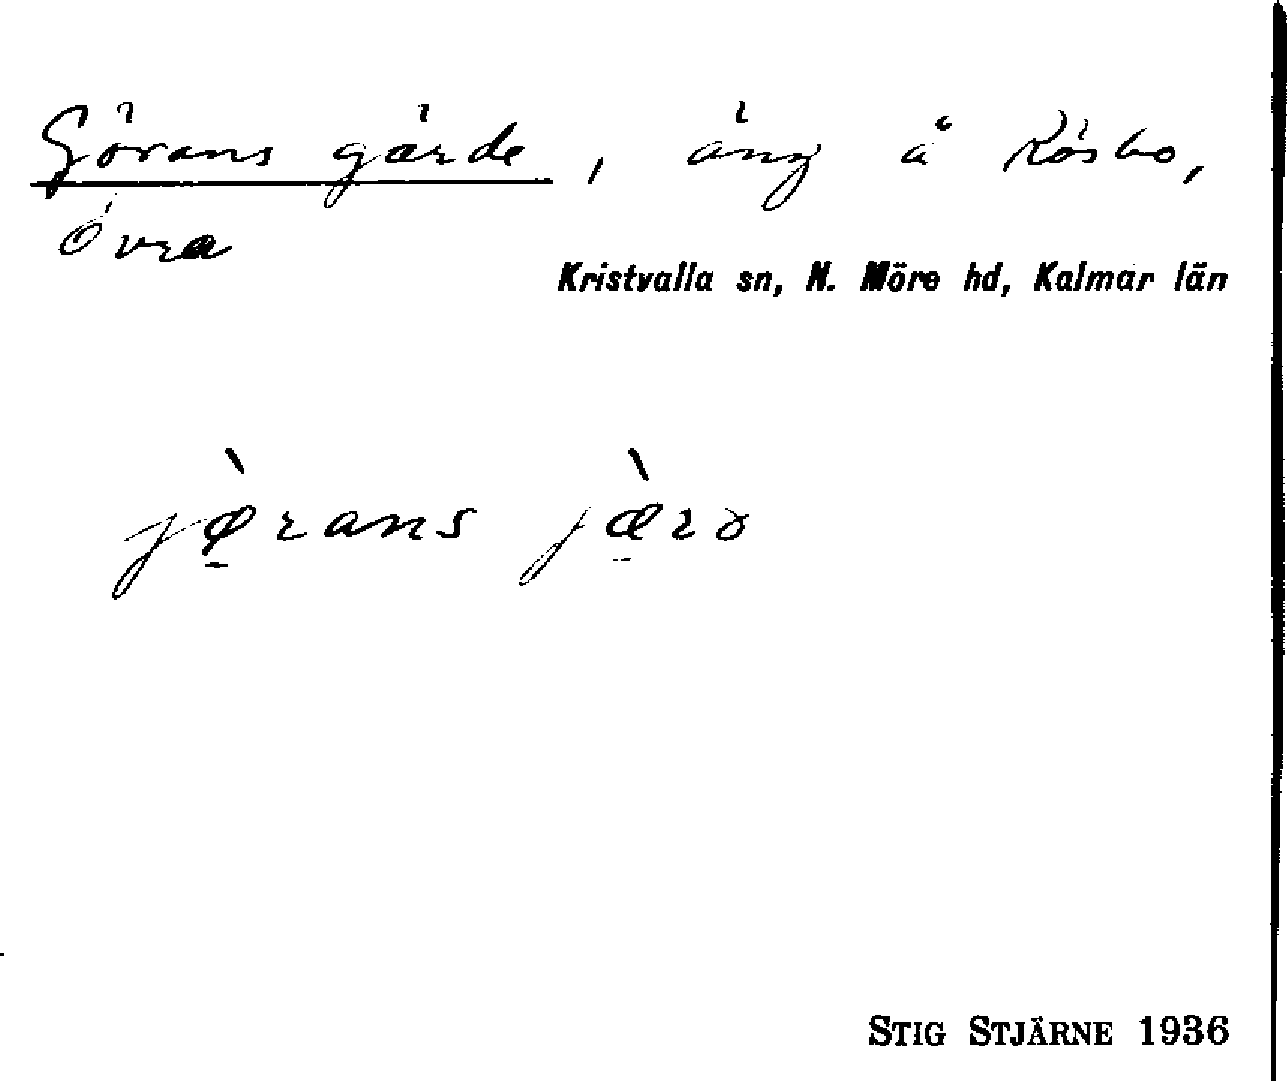 Görans gärde, äng å Rösbo,
Övra
Kristvalla sn, N. Möre hd, Kalmar län
jø̱̀rans jæ̱̀rə
STIG STJÄRNE 1936